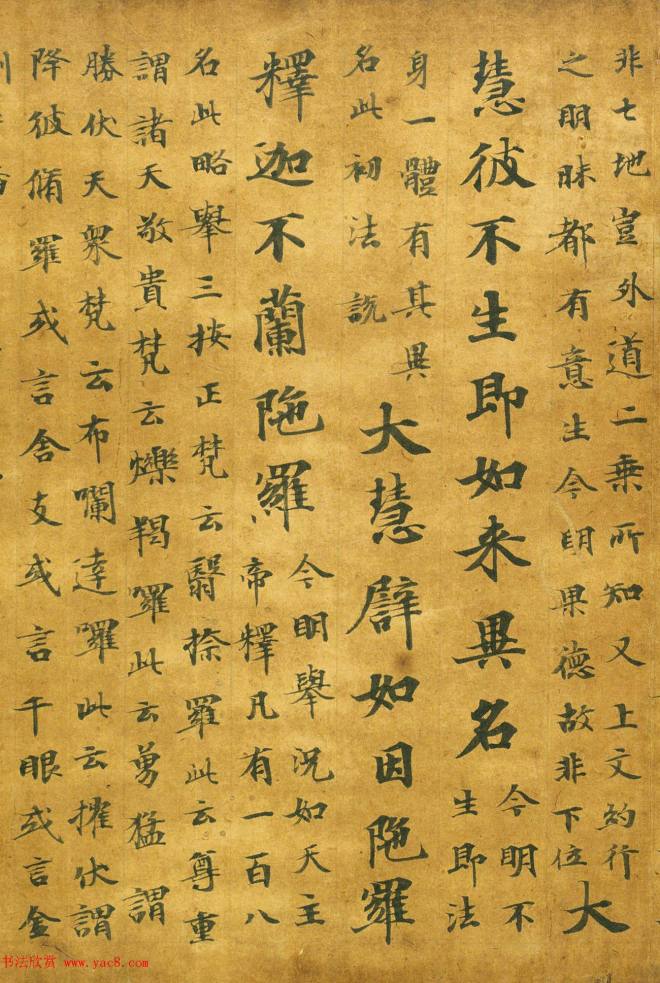 非七地豈外道二乗所知又上文約行
之明昧都有意生今明果德故非下位
大
慧彼不生即如来異名
今明不
生即法
身一體有其異
名此初法說
大慧譬如因陁羅
釋迦不蘭陁羅
今明舉況如天主
帝釋凡有一百八
名此略舉三按正梵云翳捺羅此云尊重
謂諸天敬貴梵云爍羯囉此云勇猛謂
勝伏天衆梵云布囒達囉此云摧伏謂
降彼脩羅或言舍支或言千眼或言金
书法欣赏 www.yac8.com